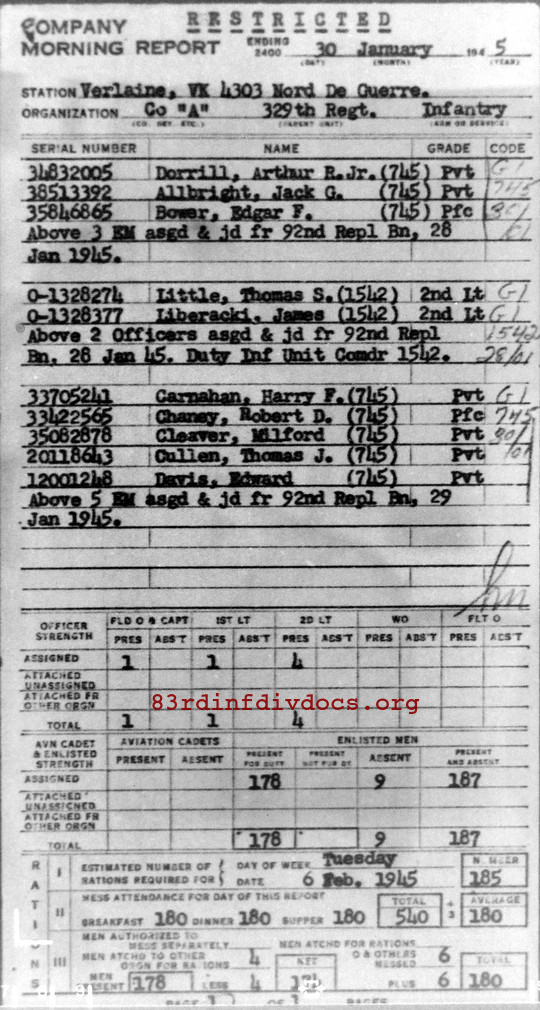 RESTRICTED
COMPANY
MORNING REPORT ENDING 2400 30 January 194 5
(DAY) (MONTH) (YEAR)
STATION Verlaine, VK 4303 Nord De Guerre.
ORGANIZATION Co "A" 329th Regt. Infantry
(CO. DET. ETC.) (PARENT UNIT) (ARM OR SERVICE)
SERIAL NUMBER NAME GRADE CODE
34832005 Dorrill, Arthur R.Jr.(745) Pvt G1
38513392 Allbright, Jack G. (745) Pvt 745
35846865 Bower, Edgar F. (745) Pfc
Above 3 EM asgd & jd fr 92nd Repl Bn, 28
Jan 1945.
O-1328274 Little, Thomas S.(1542) 2nd Lt G1
O-1328377 Liberacki, James (1542) 2nd Lt G1
Above 2 Officers asgd & jd fr 92nd Repl 1542
Bn, 28 Jan 45. Duty Inf Unit Comdr 1542. 28/01
33705241 Carnahan, Harry F.(745) Pvt G1
33422565 Chaney, Robert D. (745) Pfc 745
35082878 Cleaver, Milford (745) Pvt
20118643 Cullen, Thomas J. (745) Pvt
12001248 Davis, Edward (745) Pvt
Above 5 EM asgd & jd fr 92nd Repl Bn, 29
Jan 1945.
OFFICER STRENGTH FLD O & CAPT 1ST LT 2D LT WO FLT O
PRES ABS'T PRES ABS'T PRES ABS'T PRES ABS'T PRES ABS'T
ASSIGNED 1 1 4
ATTACHED UNASSIGNED
ATTACHED FR OTHER ORGN
83rdinfdivdocs.org
TOTAL 1 1 4
AVN CADET & ENLISTED STRENGTH AVIATION CADETS ENLISTED MEN
PRESENT ABSENT PRESENT FOR DUTY PRESENT NOT FOR DY ABSENT PRESENT AND ABSENT
ASSIGNED 178 9 187
ATTACHED UNASSIGNED
ATTACHED FR OTHER ORGN
TOTAL 178 9 187
RATIONS
I ESTIMATED NUMBER OF RATIONS REQUIRED FOR DAY OF WEEK Tuesday NUMBER
DATE 6 Feb. 1945 185
II MESS ATTENDANCE FOR DAY OF THIS REPORT TOTAL AVERAGE
BREAKFAST 180 DINNER 180 SUPPER 180 540 ÷ 3 180
III MEN AUTHORIZED TO MESS SEPARATELY MEN ATCHD FOR RATIONS
MEN ATCHD TO OTHER ORGN FOR RATIONS 4 NET O & OTHERS MESSED 6 TOTAL
MEN PRESENT 178 LESS 4 PLUS 6 180
PAGE 1 OF 1 PAGES